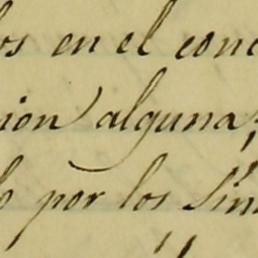 os en el conc
ion alguna;
o por los Sin